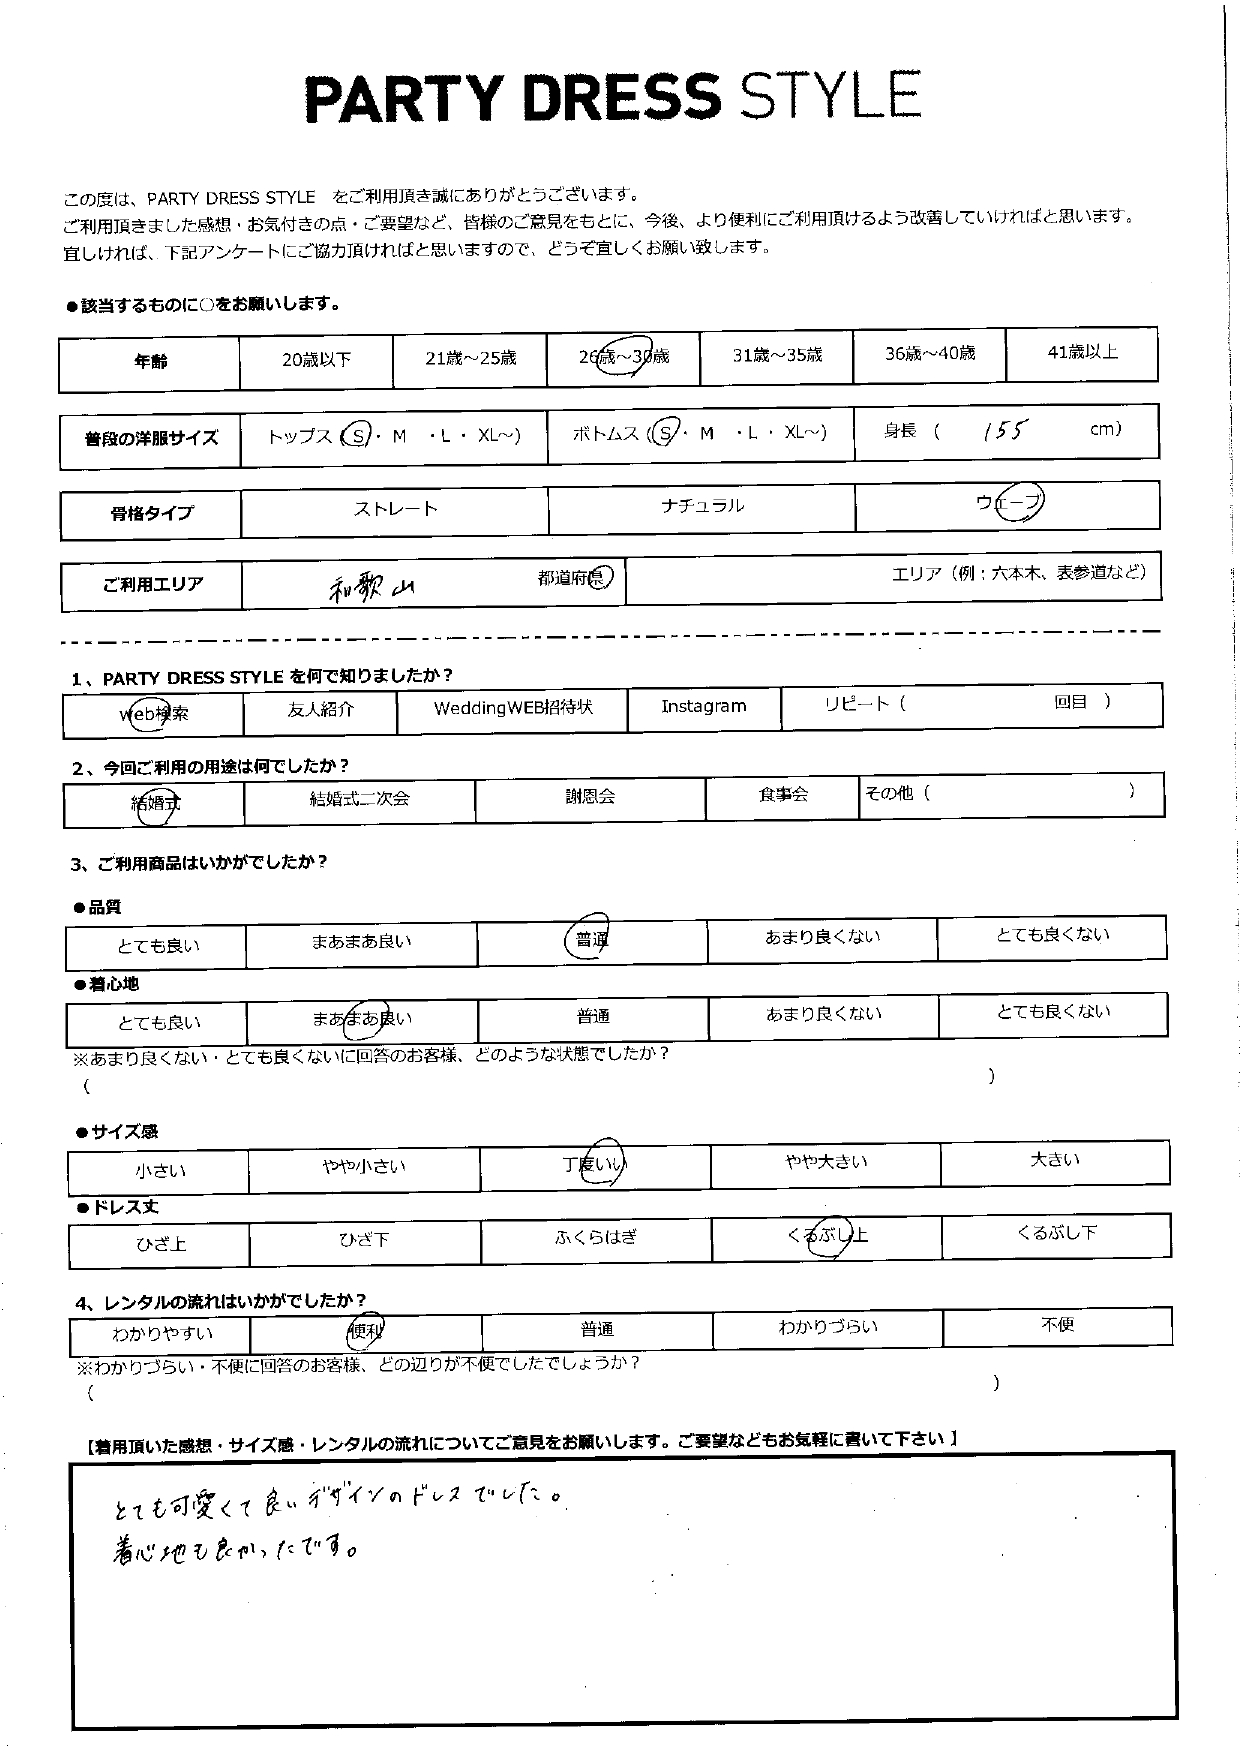 PARTY DRESS STYLE
この度は、PARTY DRESS STYLE　をご利用頂き誠にありがとうございます。
ご利用頂きました感想・お気付きの点・ご要望など、皆様のご意見をもとに、今後、より便利にご利用頂けるよう改善していければと思います。
宜しければ、下記アンケートにご協力頂ければと思いますので、どうぞ宜しくお願い致します。
●該当するものに○をお願いします。
年齢 20歳以下 21歳～25歳 26歳～30歳 31歳～35歳 36歳～40歳 41歳以上
普段の洋服サイズ トップス（S・ M ・L・ XL～） ボトムス（S・ M ・L・ XL～） 身長（ 155 cm）
骨格タイプ ストレート ナチュラル ウェーブ
ご利用エリア 和歌山 都道府県 エリア（例：六本木、表参道など）
1、PARTY DRESS STYLE を何で知りましたか？
Web検索 友人紹介 WeddingWEB招待状 Instagram リピート（ 回目 ）
2、今回ご利用の用途は何でしたか？
結婚式 結婚式二次会 謝恩会 食事会 その他（ ）
3、ご利用商品はいかがでしたか？
●品質
とても良い まあまあ良い 普通 あまり良くない とても良くない
●着心地
とても良い まあまあ良い 普通 あまり良くない とても良くない
※あまり良くない・とても良くないに回答のお客様、どのような状態でしたか？
（ ）
●サイズ感
小さい やや小さい 丁度いい やや大きい 大きい
●ドレス丈
ひざ上 ひざ下 ふくらはぎ くるぶし上 くるぶし下
4、レンタルの流れはいかがでしたか？
わかりやすい 便利 普通 わかりづらい 不便
※わかりづらい・不便に回答のお客様、どの辺りが不便でしたでしょうか？
（ ）
【着用頂いた感想・サイズ感・レンタルの流れについてご意見をお願いします。ご要望などもお気軽に書いて下さい】
とても可愛くて良いデザインのドレスでした。
着心地も良かったです。